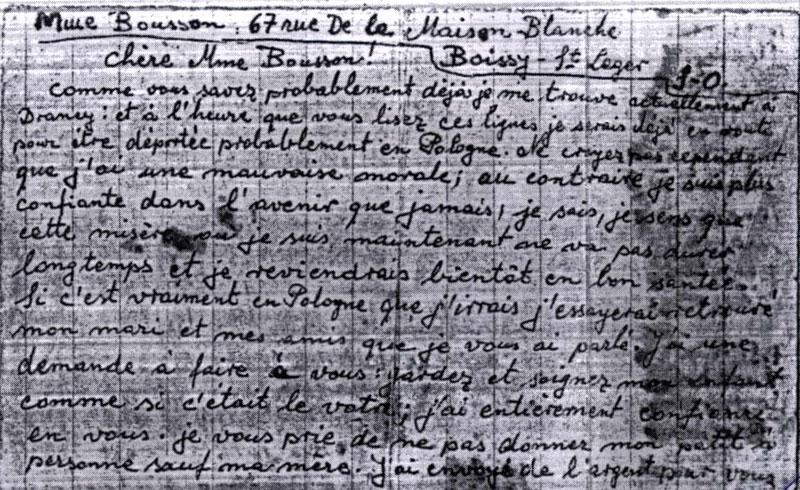 Mme Bousson : 67 rue De la Maison Blanche
Chère Mme Bousson! Boissy-St Leger S-O.
Comme vous savez probablement déjà je me trouve actuellement à
Drancy: et à l'heure que vous lisez ces lignes je serais déjà en route
pour être déportée probablement en Pologne. Ne croyez pas cependant
que j'ai une mauvaise morale; au contraire je suis plus
confiante dans l'avenir que jamais, je sais, je sens que
cette misère ou je suis maintenant ne va pas durer
longtemps et je reviendrais bientôt en bon santée.
Si c'est vraiment en Pologne que j'irrais j'essayerai retrouvé
mon mari et mes amis que je vous ai parlé. J'ai une
demande à faire à vous: gardez et soignez mon enfant
comme si c'était le votre; j'ai entièrement
en vous. je vous prie de ne pas donner mon petit à
personne sauf ma mère. J'ai envoyé de l'argent pour vous